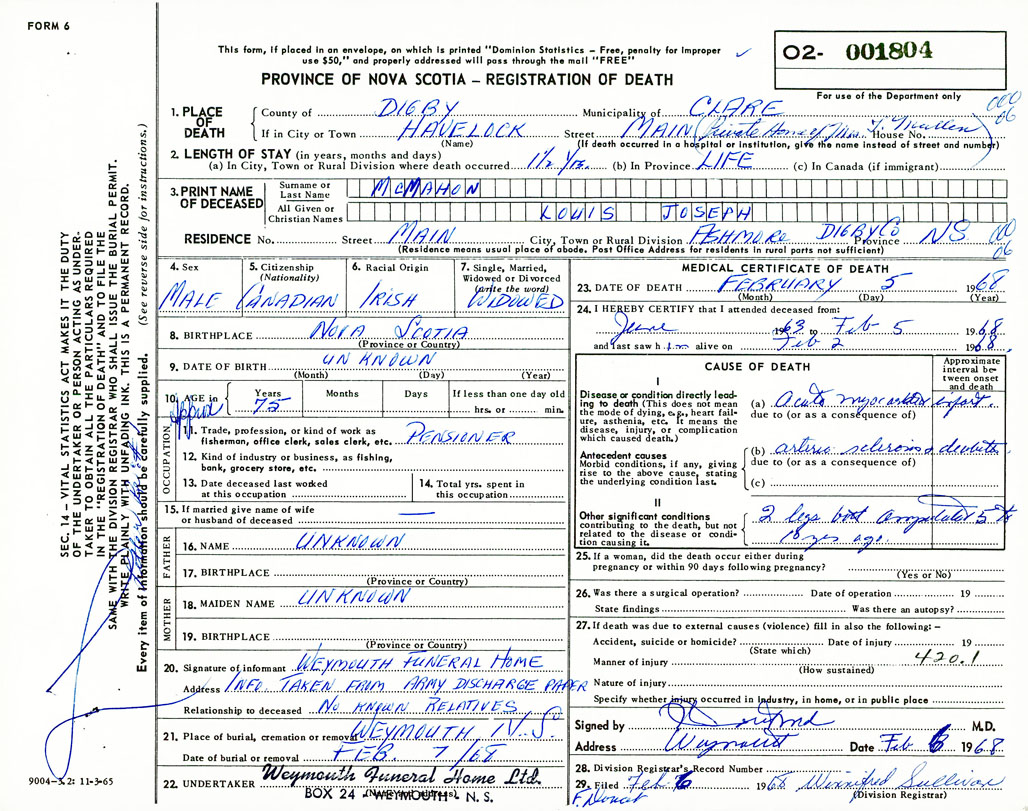 FORM 6
This form, if placed in an envelope, on which is printed "Dominion Statistics – Free, penalty for improper
use $50," and properly addressed will pass through the mail "FREE"
O2- 001804
For use of the Department only
PROVINCE OF NOVA SCOTIA – REGISTRATION OF DEATH
1. PLACE OF DEATH
County of DIGBY Municipality of CLARE
If in City or Town HAVELOCK Street MAIN (Private Home of Mrs. House No.
(Name) (If death occurred in a hospital or institution, give the name instead of street and number)
000
06
2. LENGTH OF STAY (in years, months and days)
(a) In City, Town or Rural Division where death occurred 1½ yrs. (b) In Province LIFE (c) In Canada (if immigrant)
3. PRINT NAME OF DECEASED
Surname or Last Name McMAHON
All Given or Christian Names LOUIS JOSEPH
RESIDENCE No. Street MAIN City, Town or Rural Division ASHMORE DIGBY Co Province NS
(Residence means usual place of abode. Post Office Address for residents in rural parts not sufficient)
00
06
4. Sex MALE
5. Citizenship (Nationality) CANADIAN
6. Racial Origin IRISH
7. Single, Married, Widowed or Divorced (write the word) WIDOWED
8. BIRTHPLACE NOVA SCOTIA
(Province or Country)
9. DATE OF BIRTH UNKNOWN
(Month) (Day) (Year)
10. AGE in Approx Years 75 Months Days If less than one day old
hrs. or min.
OCCUPATION
11. Trade, profession, or kind of work as
fisherman, office clerk, sales clerk, etc. PENSIONER
12. Kind of industry or business, as fishing,
bank, grocery store, etc.
13. Date deceased last worked
at this occupation
14. Total yrs. spent in
this occupation
15. If married give name of wife
or husband of deceased —
FATHER
16. NAME UNKNOWN
17. BIRTHPLACE
(Province or Country)
MOTHER
18. MAIDEN NAME UNKNOWN
19. BIRTHPLACE
(Province or Country)
20. Signature of informant WEYMOUTH FUNERAL HOME
Address INFO. TAKEN FROM ARMY DISCHARGE PAPER
Relationship to deceased NO KNOWN RELATIVES
21. Place of burial, cremation or removal WEYMOUTH, N.S.
Date of burial or removal FEB. 7/68
22. UNDERTAKER Weymouth Funeral Home Ltd.
BOX 24 - WEYMOUTH - N. S.
MEDICAL CERTIFICATE OF DEATH
23. DATE OF DEATH FEBRUARY 5 1968
(Month) (Day) (Year)
24. I HEREBY CERTIFY that I attended deceased from:
June 1963 to Feb 5 1968
and last saw him alive on Feb 2 1968.
CAUSE OF DEATH
Approximate interval between onset and death
I
Disease or condition directly leading to death (This does not mean
the mode of dying, e.g., heart failure, asthenia, etc. It means the
disease, injury, or complication
which caused death.)
(a) Acute myocardial infarct.
due to (or as a consequence of)
Antecedent causes
Morbid conditions, if any, giving
rise to the above cause, stating
the underlying condition last.
(b) arterio sclerosis & diabetes
due to (or as a consequence of)
(c)
II
Other significant conditions
contributing to the death, but not
related to the disease or condition causing it.
2 legs both amputated 5 to
10 yrs ago.
25. If a woman, did the death occur either during
pregnancy or within 90 days following pregnancy?
(Yes or No)
26. Was there a surgical operation? Date of operation 19
State findings Was there an autopsy?
27. If death was due to external causes (violence) fill in also the following: –
Accident, suicide or homicide? Date of injury 19
(State which)
Manner of injury 420.1
(How sustained)
Nature of injury
Specify whether injury occurred in industry, in home, or in public place
Signed by M.D.
Address Weymouth Date Feb 6 1968
28. Division Registrar's Record Number
29. Filed Feb 6 1968 Winnifred Sullivan
(Division Registrar)
SEC. 14 – VITAL STATISTICS ACT MAKES IT THE DUTY
OF THE UNDERTAKER OR PERSON ACTING AS UNDERTAKER TO OBTAIN ALL THE PARTICULARS REQUIRED
IN THE "REGISTRATION OF DEATH" AND TO FILE THE
SAME WITH THE DIVISION REGISTRAR WHO SHALL ISSUE THE BURIAL PERMIT.
WRITE PLAINLY WITH UNFADING INK. THIS IS A PERMANENT RECORD.
Every item of information should be carefully supplied. (See reverse side for instructions.)
9004-3.2: 11-3-65